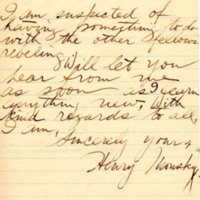 I am suspected of
having something to do
with the other fellows
rebeling.
I Will let you
hear from me
as soon as I learn
anything new, With
kind regards to all,
I am,
Sincerely Yours,
Henry Monsky